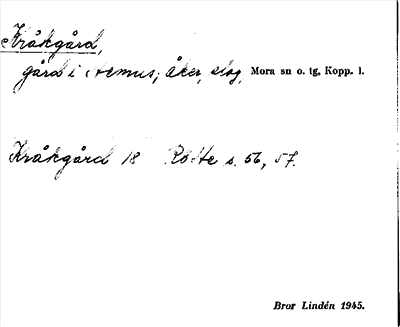 Kråkgård,
gård i Nemus; åker, slog, Mora sn o. tg, Kopp. l.
Kråkgård 18 Rotte s. 56, 57.
Bror Lindén 1945.